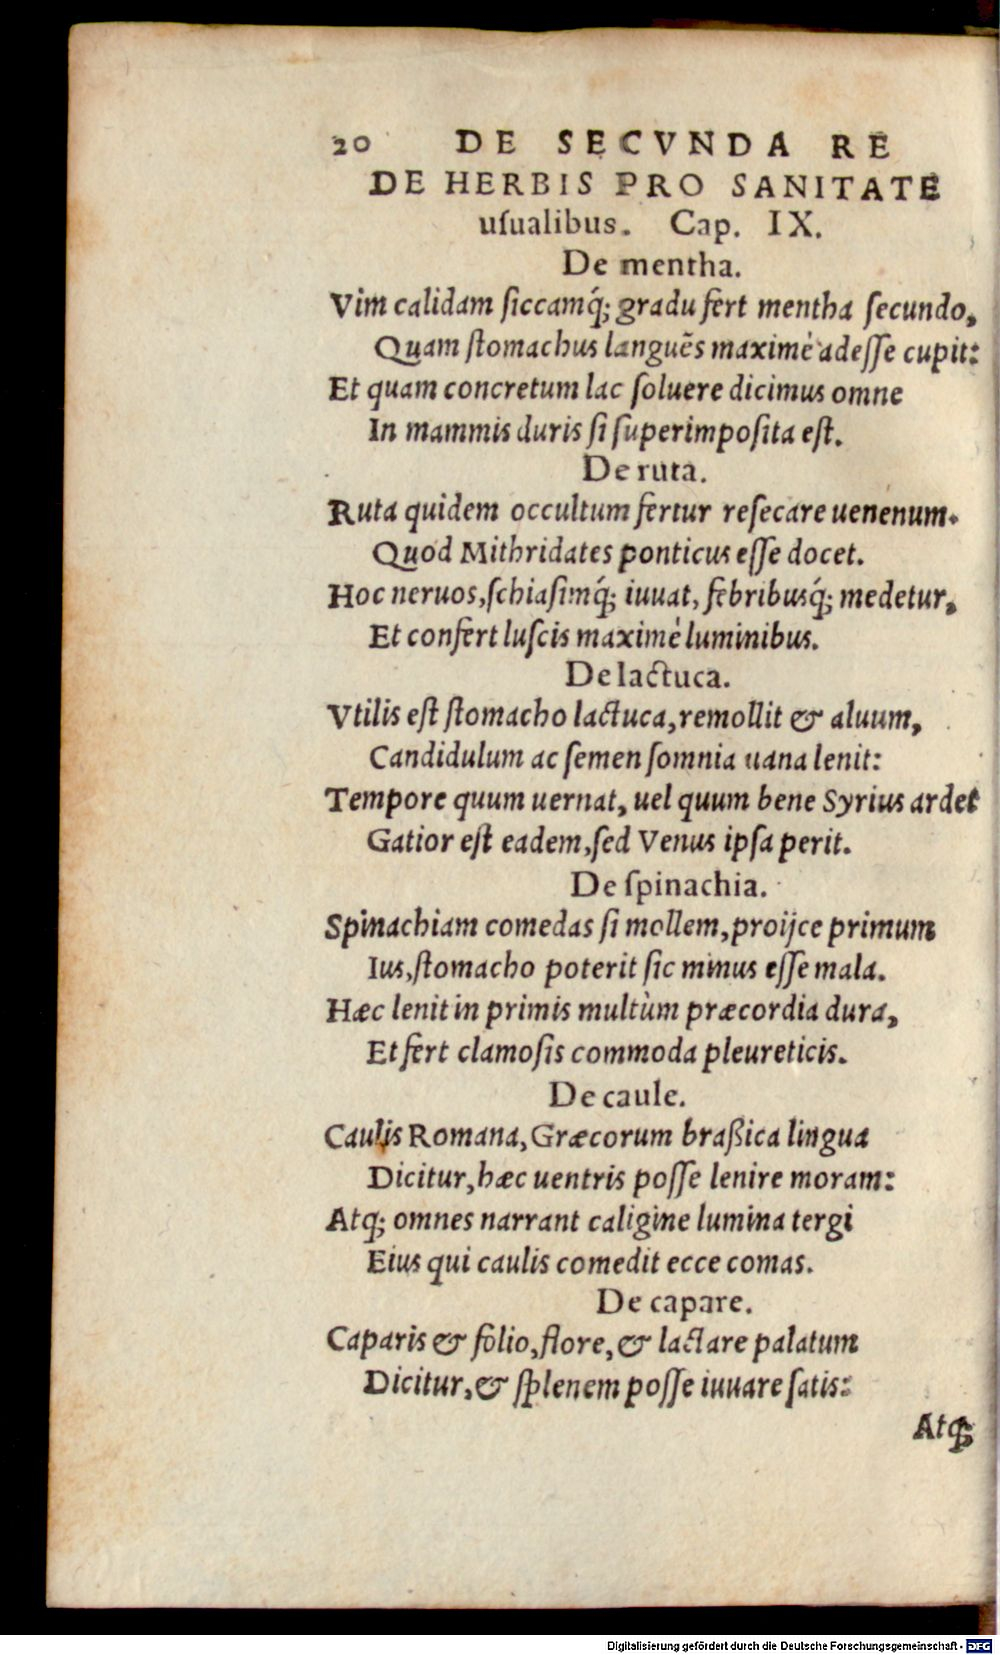 20 DE SECVNDA RE
DE HERBIS PRO SANITATE
uſualibus. Cap. IX.
De mentha.
Vim calidam ſiccamq́; gradu fert mentha ſecundo,
Quam ſtomachus languẽs maximè adeſſe cupit:
Et quam concretum lac ſoluere dicimus omne
In mammis duris ſi ſuperimpoſita eſt.
De ruta.
Ruta quidem occultum fertur reſecare uenenum.
Quod Mithridates ponticus eſſe docet.
Hoc neruos, ſchiaſimq́; iuuat, febribusq́; medetur,
Et confert luſcis maximè luminibus.
De lactuca.
Vtilis eſt ſtomacho lactuca, remollit & aluum,
Candidulum ac ſemen ſomnia uana lenit:
Tempore quum uernat, uel quum bene Syrius ardet
Gatior eſt eadem, ſed Venus ipſa perit.
De ſpinachia.
Spinachiam comedas ſi mollem, proijce primum
Ius, ſtomacho poterit ſic minus eſſe mala.
Hæc lenit in primis multùm præcordia dura,
Et fert clamoſis commoda pleureticis.
De caule.
Caulis Romana, Græcorum braßica lingua
Dicitur, hæc uentris poſſe lenire moram:
Atq; omnes narrant caligine lumina tergi
Eius qui caulis comedit ecce comas.
De capare.
Caparis & folio, flore, & lactare palatum
Dicitur, & ſplenem poſſe iuuare ſatis:
Atq;
Digitalisierung gefördert durch die Deutsche Forschungsgemeinschaft - DFG